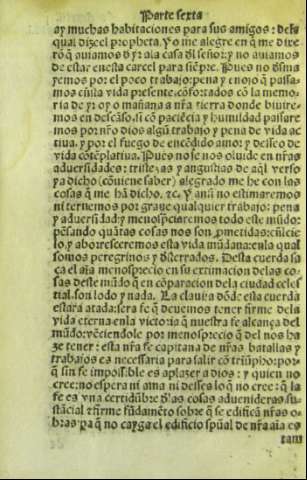 Parte sexta
ay muchas habitaciones para sus amigos: dela
qual dize el propheta. Yo me alegre en q̃ me dixe
rõ q̃ auiamos d̃ yr ala casa d̃l señor: y no auiamos
de estar en esta carcel para siẽpre. Pues no d̃sma
yemos por el poco trabajo: pena y enojo q̃ passa-
mos en la vida presente. cõfortados cõ la memo-
ria de yr oy o mañana a nr̃a tierra donde biuire-
mos en descãso. si cõ paciẽcia y humildad passare
mos por nr̃o dios algũ trabajo y pena de vida ac
tiua. y por el fuego de encẽdido amor y desseo de
vida cõtẽplatiua. Pues no se nos oluide en nr̃as
aduersidades: tristezas y angustias de aq̃l verso
ya dicho (cõuiene saber) alegrado me he con las
cosas q̃ me hã dicho. ⁊c. Y anñ no estimaremos
ni ternemos por graue qualquier trabajo: pena
y aduersidad: y menospreciaremos todo este mũdo:
pẽsando quãtas cosas nos son ꝓmetidas: e̓nl cie-
lo. y aborresceremos esta vida mũdana: en la qual
somos peregrinos y d̃sterrados. Desta cuerda sa
ca el aĩa menosprecio en su extimacion delas co-
sas deste mũdo q̃ en cõparacion dela ciudad celes
tial. son lodo y nada. La clauija dõde esta cuerda
estara atada: sera fe q̃ deuemos tener firme dela
vida eterna: en la victoria q̃ nuestra fe alcança del
mũdo: vẽciendole por menosprecio q̃ del nos ha
ze tener: esta nr̃a fe capitana de nr̃as batallas y
trabajos es necessaria para salir cõ triũpho: por-
q̃ sin fe impossible es aplazer a dios: y quien no
cree: no espera ni ama ni dessea lo q̃ no cree: q̃ la
fe es vna certidũbre d̃las cosas aduenideras su-
stãcial ⁊ firme fũdamẽto sobre q̃ se edificã nr̃as o-
bras pa q̃ no cayga el edificio spũal de nr̃a aĩa es
tam